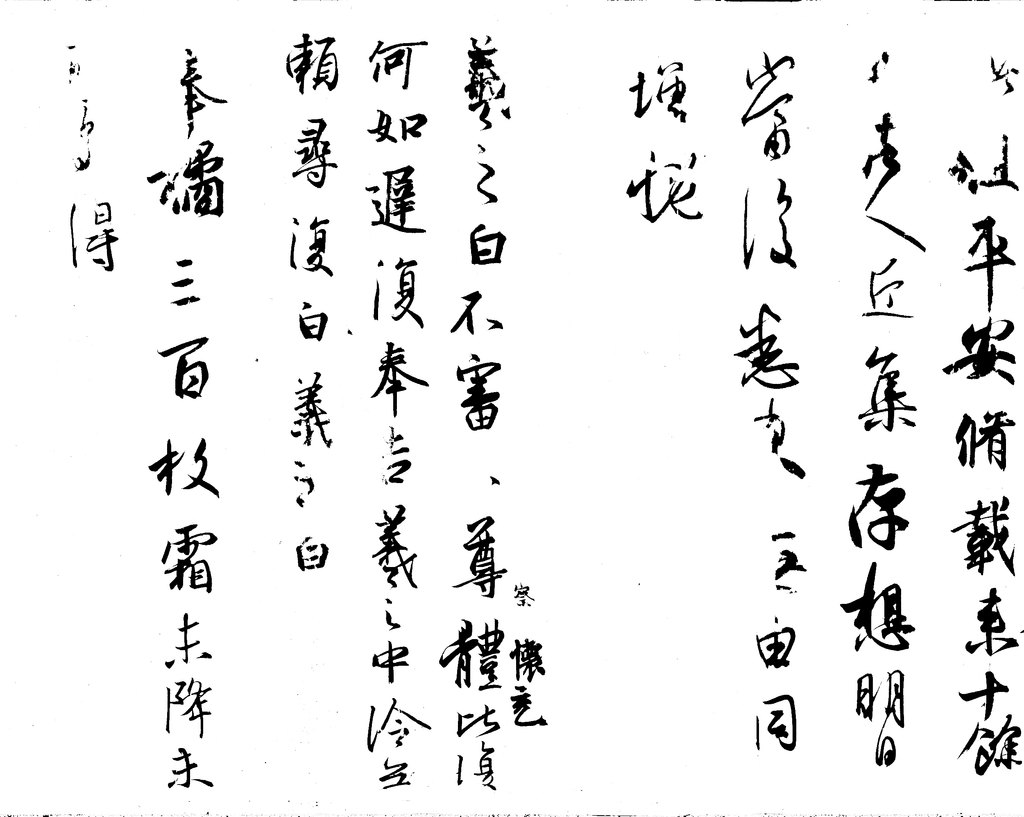 此粗平安脩載来十餘
日諸人近集存想明日
當復悉来無由同
增慨
羲之白不審、尊體比復
察 懷充
何如遲復奉告羲之中冷無
賴尋復白羲之白
奉橘三百枚霜未降未
可多得